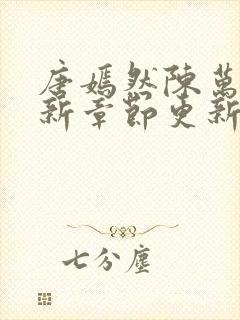 唐嫣然陳萬
新章節更新
七分塵